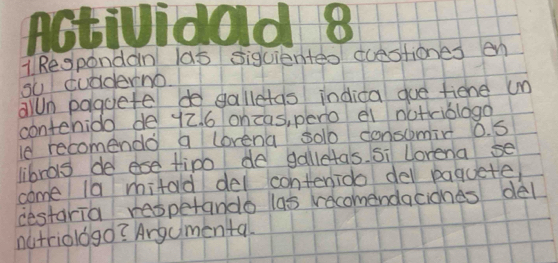 Actividad 8
1. Respondan las siguientes cuestiones en
su cuaderno.
a) Un paquete de galletas indica que tiene un
contenido de 42.6 onzas, pero el nutriólogo
le recomendó a Lorena solo consumir 0.5
libras de ese tipo de galletas. Si Lorena se
come la mitad del contenido del paquete,
cestaría respetando las recomendaciones del
nutriológo? Argumenta.